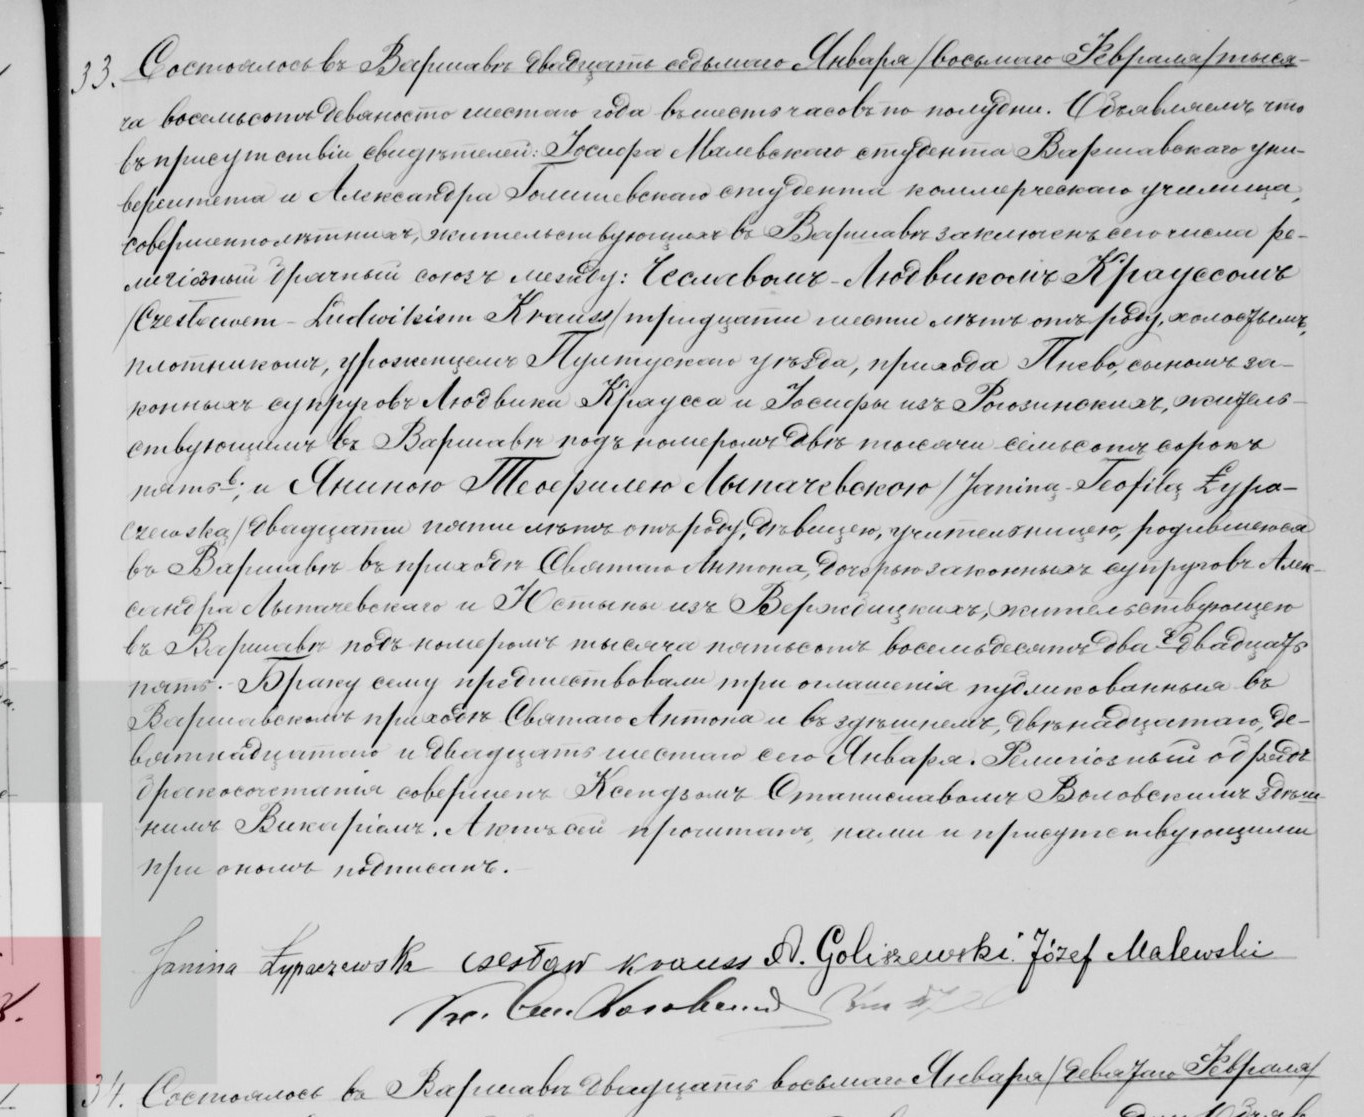 33. Состоялось въ Варшавѣ двадцать седьмаго Января /восьмаго Февраля/ тыся-
ча восемьсотъ девяносто шестаго года въ шесть часовъ по полудни. Объявляемъ что
въ присутствіи свидѣтелей: Іосифа Малевскаго студента Варшавскаго уни-
верситета и Александра Голишевскаго студента коммерческаго училища,
совершеннолѣтнихъ, жительствующихъ въ Варшавѣ заключенъ сего числа ре-
лигіозный брачный союзъ между: Чеславомъ-Людвикомъ Крауссомъ
/Czesławem-Ludwikiem Krauss/ тридцати шести лѣтъ отъ роду, холостымъ,
плотникомъ, уроженцемъ Пултускаго уѣзда, прихода Пнево, сыномъ за-
конныхъ супруговъ Людвика Краусса и Іосифы изъ Рогозинскихъ, житель-
ствующимъ въ Варшавѣ подъ номеромъ двѣ тысячи семьсотъ сорокъ
пять в; и Яниною Теофилею Лыпачевскою /Janiną-Teofilą Łypa-
czewską/ двадцати пяти лѣтъ отъ роду, дѣвицею, учительницею, родившеюся
въ Варшавѣ въ приходѣ Святаго Антона, дочерью законныхъ супруговъ Алек-
сандра Лыпачевскаго и Юстыны изъ Вержбицкихъ, жительствующею
въ Варшавѣ подъ номеромъ тысяча пятьсотъ восемьдесятъ два двадцать
пять. Браку сему предшествовали три оглашенія публикованныя въ
Варшавскомъ приходѣ Святаго Антона и въ здѣшнемъ, двѣнадцатаго, де-
вятнадцатаго и двадцать шестаго сего Января. Религіозный обрядъ
бракосочетанія совершенъ Ксендзомъ Станиславомъ Воловскимъ здѣш-
нимъ Викаріемъ. Актъ сей прочитанъ, нами и присутствующими
при ономъ подписанъ.
Janina Łypaczewska czesław krauss A. Goliszewski. Józef Malewski
34. Состоялось въ Варшавѣ двадцать восьмаго Января /девятаго Февраля/